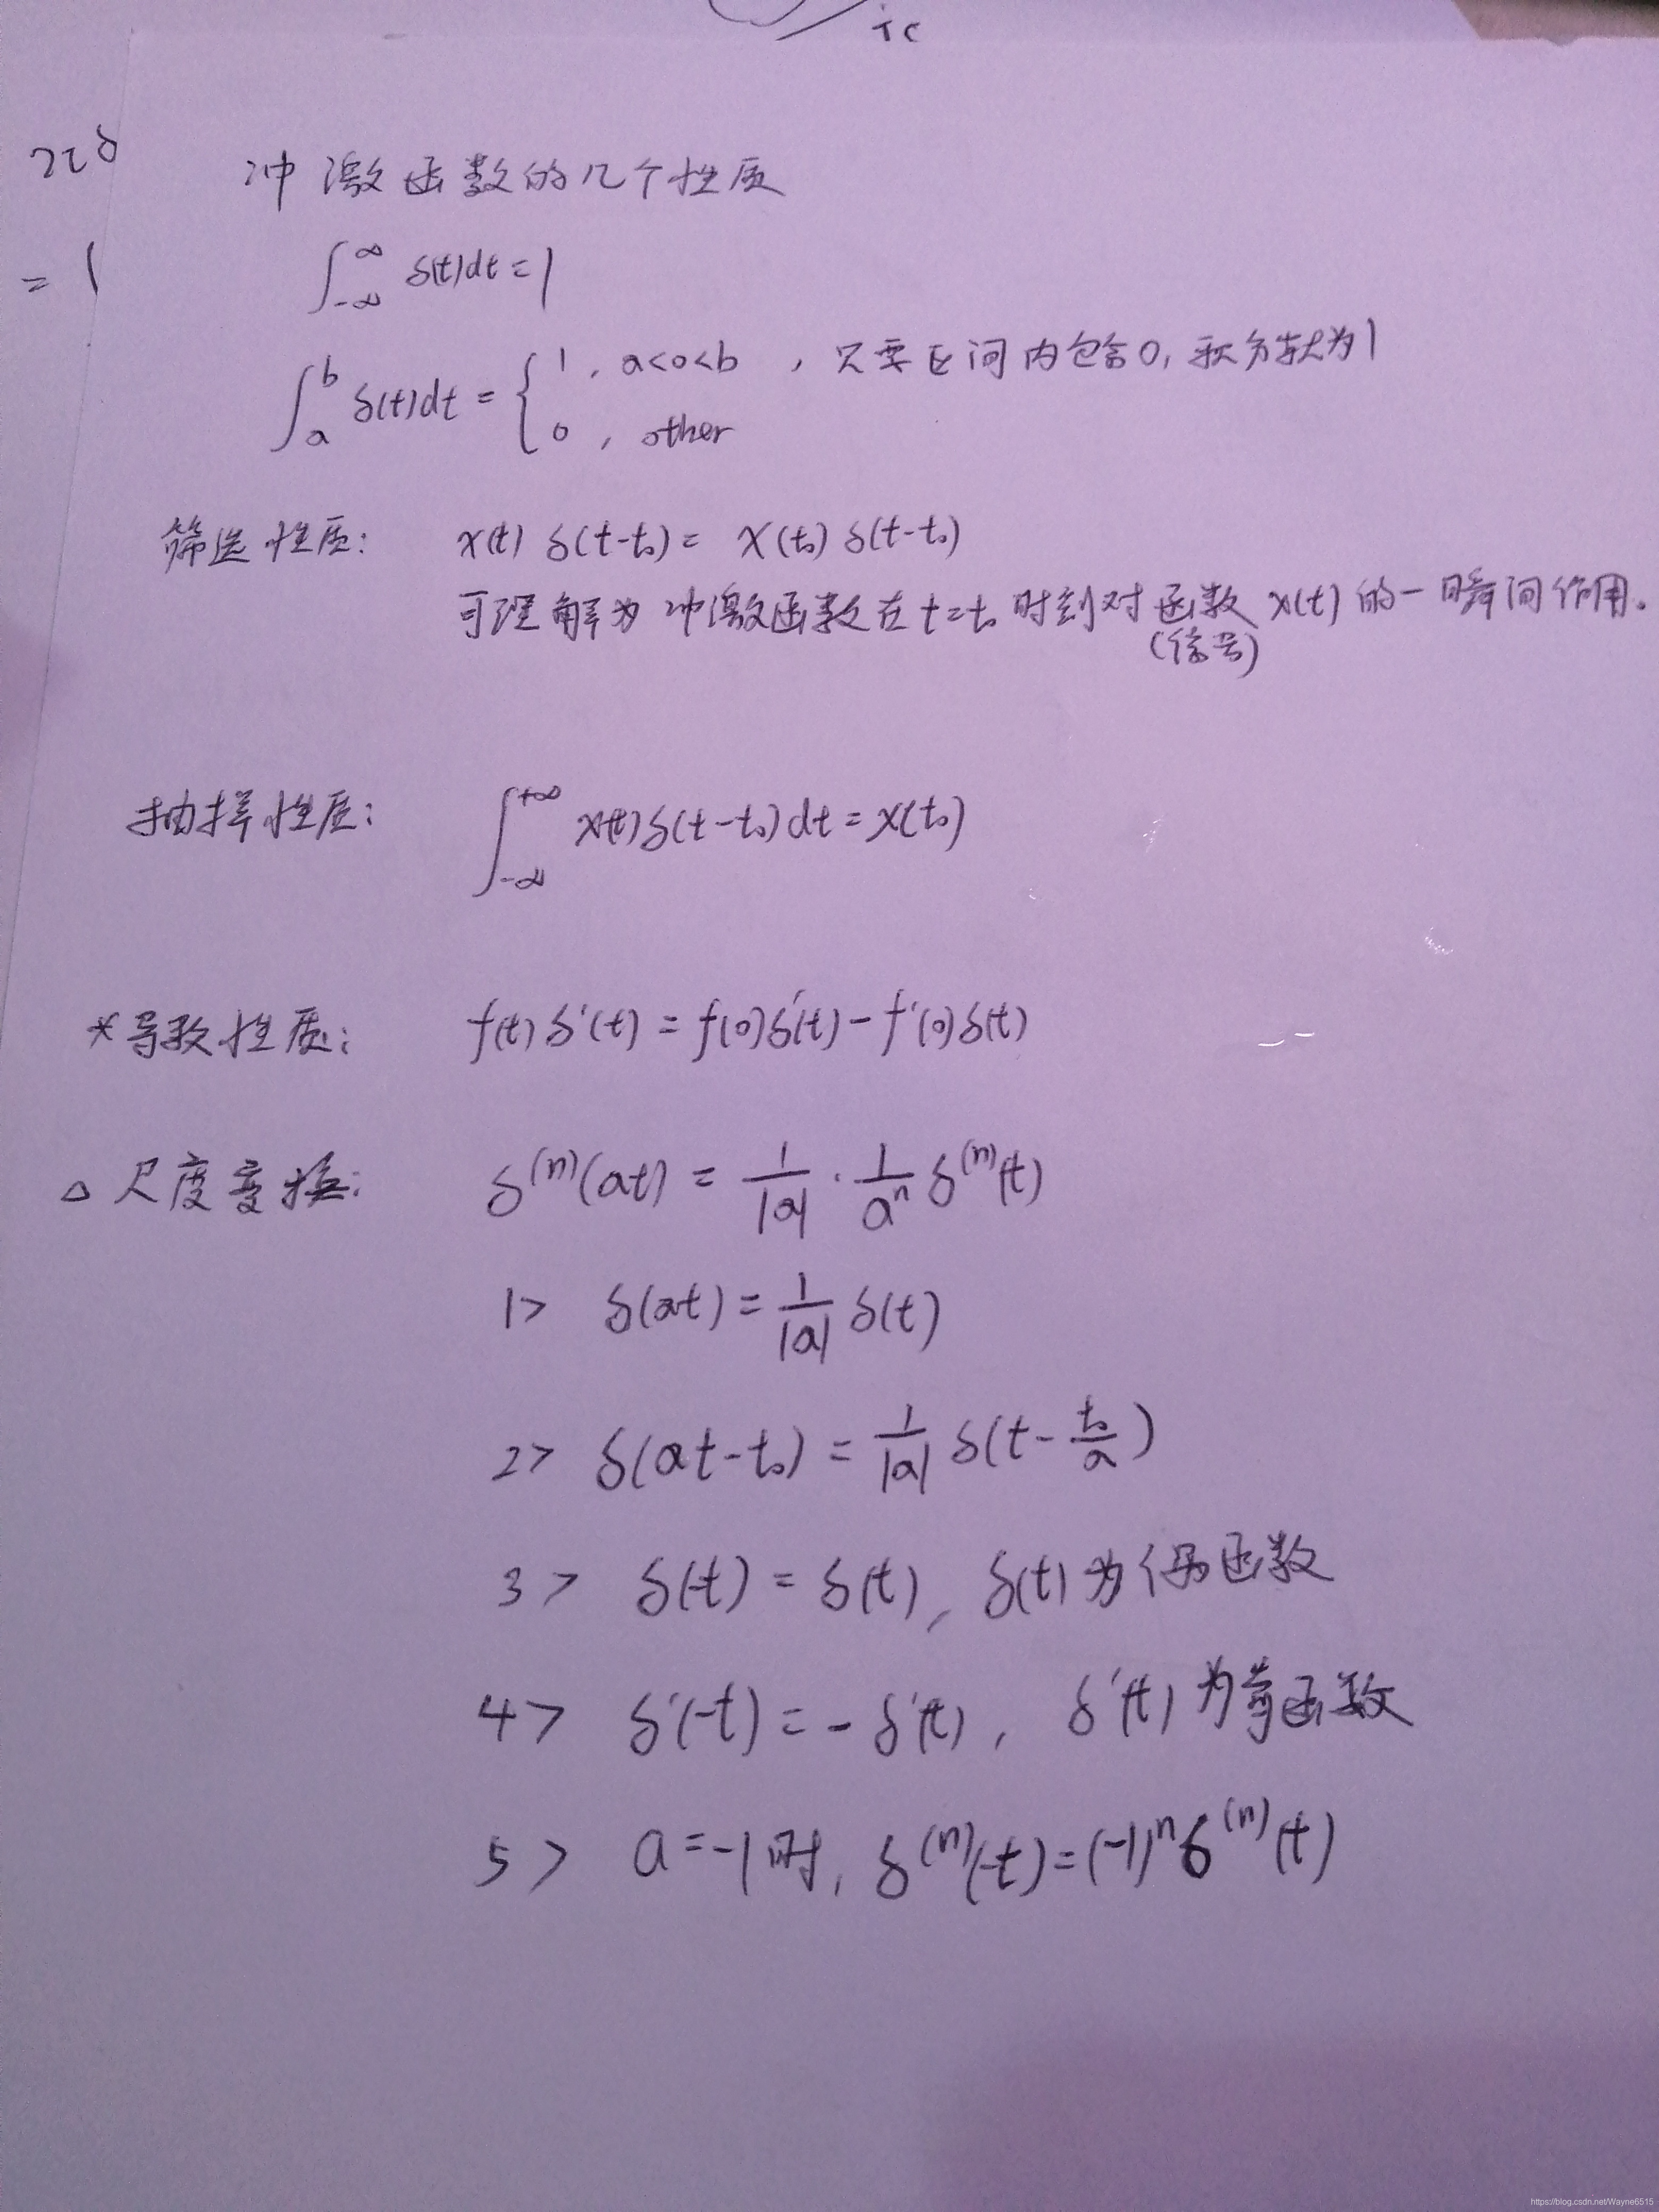 冲激函数的几个性质
∫_{-∞}^{∞} δ(t)dt = 1
∫_{a}^{b} δ(t)dt = { 1, a<0<b , 只要区间内包含0, 积分就为1
0 , other
筛选性质: x(t) δ(t-t₀) = x(t₀) δ(t-t₀)
可理解为冲激函数在t=t₀时刻对函数x(t)的一瞬间作用。
(信号)
抽样性质: ∫_{-∞}^{+∞} x(t)δ(t-t₀)dt = x(t₀)
*导数性质: f(t)δ'(t) = f(0)δ'(t) - f'(0)δ(t)
△ 尺度变换: δ^{(n)}(at) = 1/|a| · 1/a^n δ^{(n)}(t)
1> δ(at) = 1/|a| δ(t)
2> δ(at-t₀) = 1/|a| δ(t - t₀/a)
3> δ(-t) = δ(t), δ(t)为偶函数
4> δ'(-t) = -δ'(t), δ'(t)为奇函数
5> a=-1时, δ^{(n)}(-t) = (-1)^n δ^{(n)}(t)
= 1
https://blog.csdn.net/Wayne6515